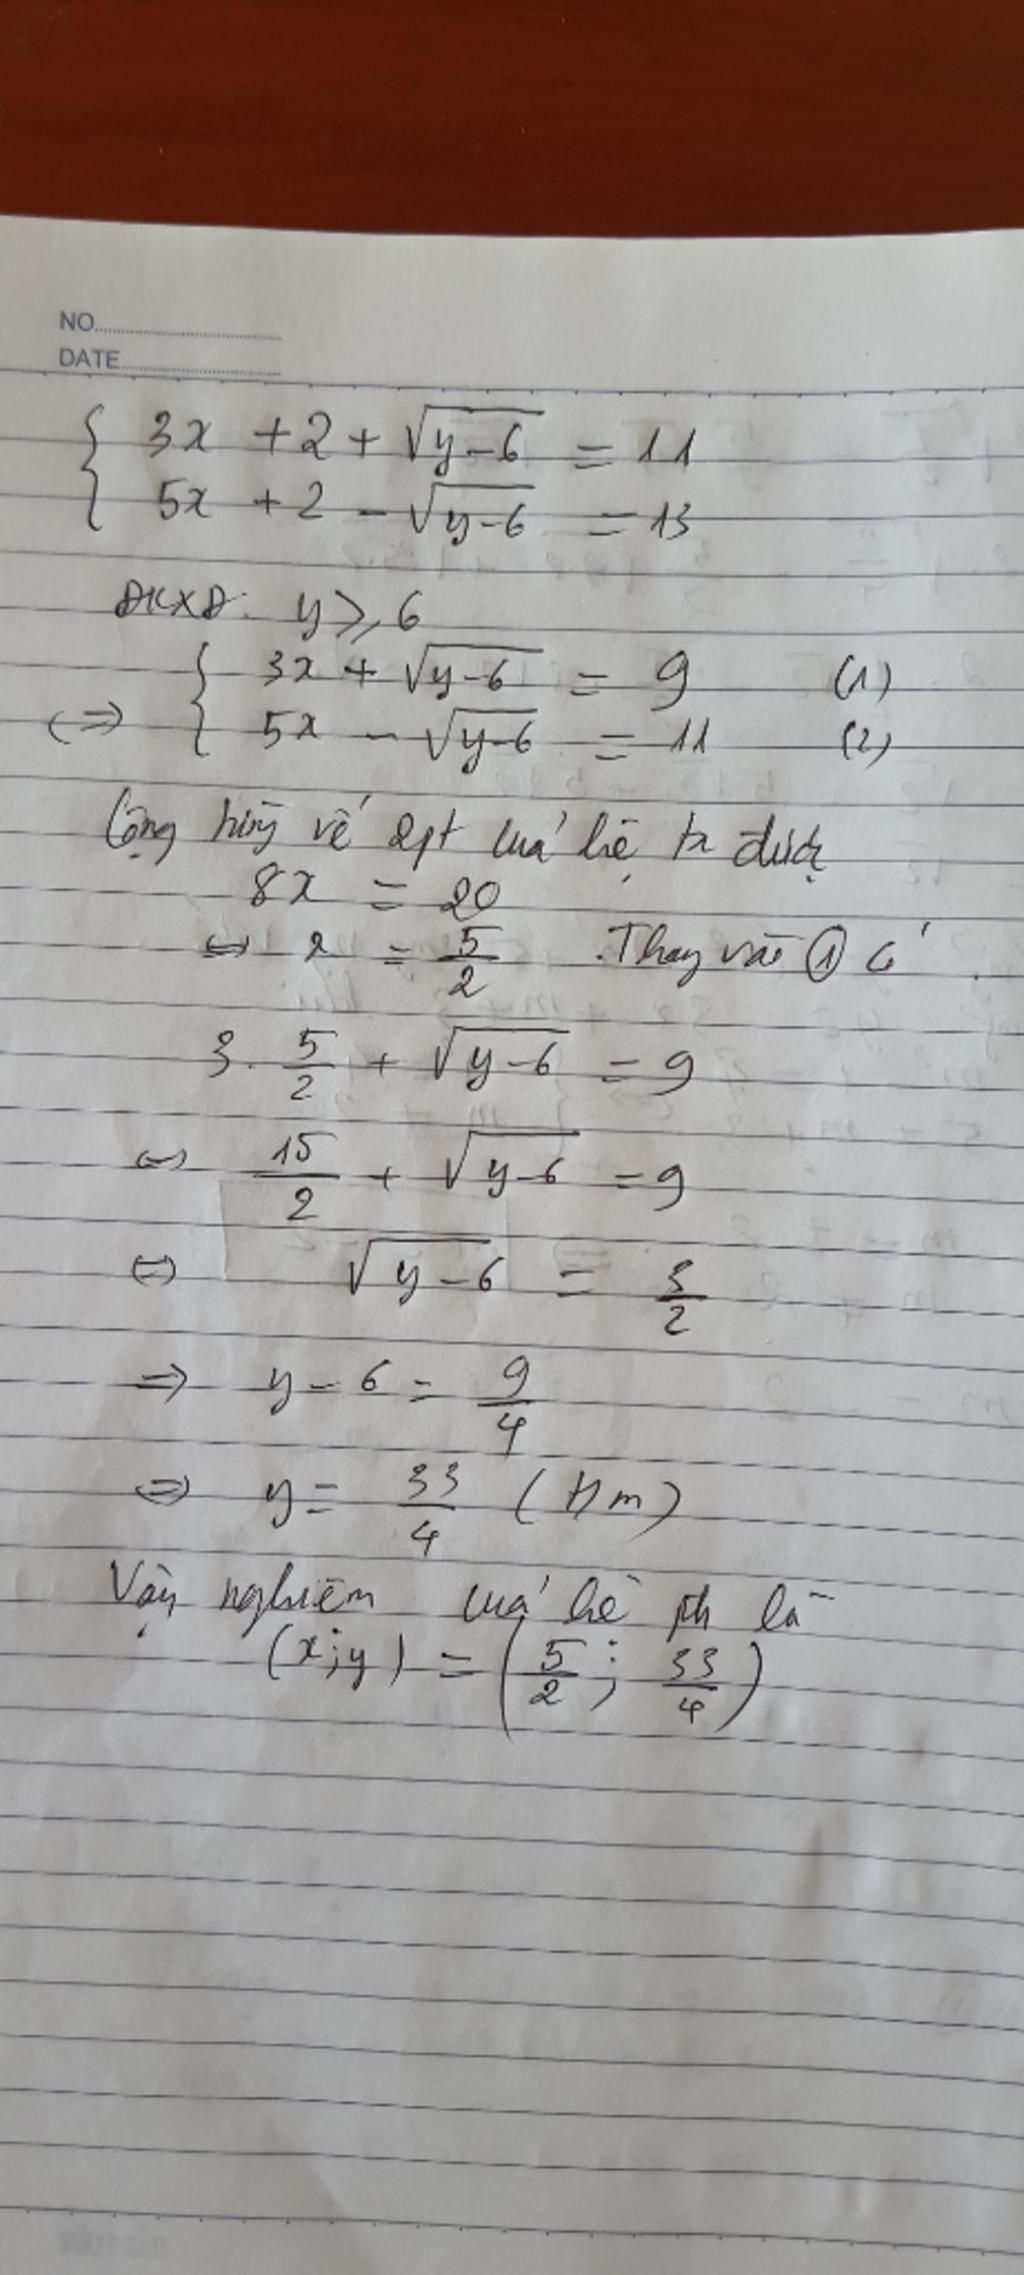 NO.
DATE
{ 3x + 2 + √(y-6) = 11
{ 5x + 2 - √(y-6) = 13
ĐKXĐ: y ≥ 6
⇔ { 3x + √(y-6) = 9 (1)
{ 5x - √(y-6) = 11 (2)
Cộng từng vế 2pt của hệ ta được
8x = 20
⇔ x = 5/2 . Thay vào ① có
3. 5/2 + √(y-6) = 9
⇔ 15/2 + √(y-6) = 9
⇔ √(y-6) = 3/2
⇒ y - 6 = 9/4
⇔ y = 33/4 (t/m)
Vậy nghiệm của hệ pt là
(x;y) = (5/2 ; 33/4)